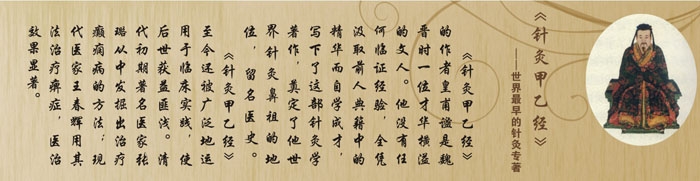 《针灸甲乙经》
——世界最早的针灸专著
《针灸甲乙经》
的作者皇甫谧是魏
晋时一位才华横溢
的文人。他没有任
何临证经验，全凭
汲取前人典籍中的
精华而自学成才，
写下了这部针灸学
著作，奠定了他世
界针灸鼻祖的地
位，留名医史。
《针灸甲乙经》
至今还被广泛地运
用于临床实践，使
后世获益匪浅。清
代初期著名医家张
璐从中发掘出治疗
癫痫病的方法；现
代医家王春辉用其
法治疗痹症，医治
效果显著。